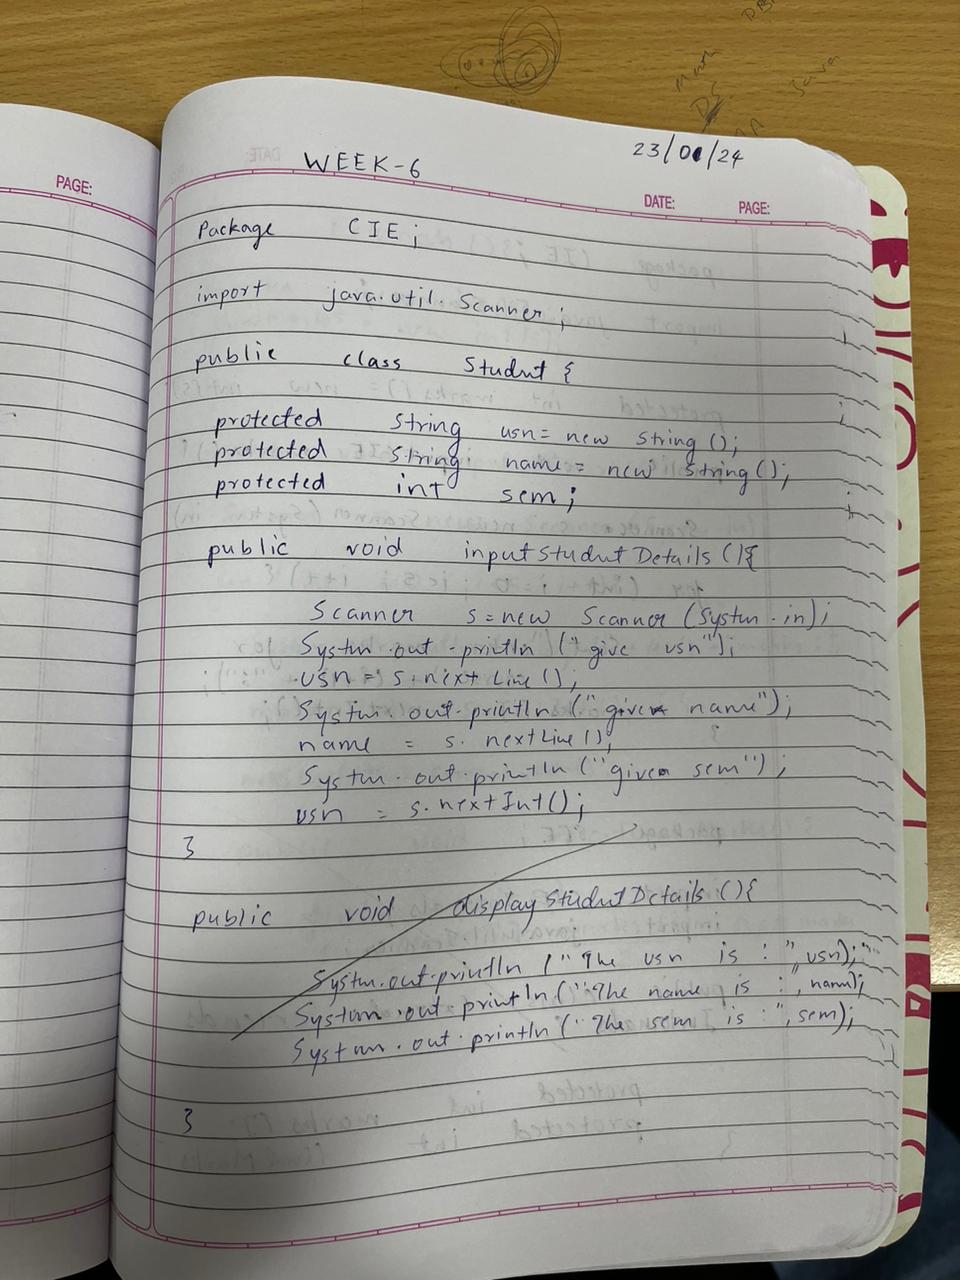 PAGE:
23/01/24
WEEK-6
DATE: PAGE:
Package CIE;
import java.util.Scanner;
public class Student {
protected String usn= new String();
protected String name= new String();
protected int sem;
public void inputStudentDetails(){
Scanner s=new Scanner(System.in);
System.out.println("give usn");
usn= s.nextLine();
System.out.println("give name");
name = s.nextLine();
System.out.println("give sem");
usn = s.nextInt();
}
public void displayStudentDetails(){
System.out.println("The usn is :", usn);
System.out.println("The name is :, name);
System.out.println("The sem is :", sem);
}